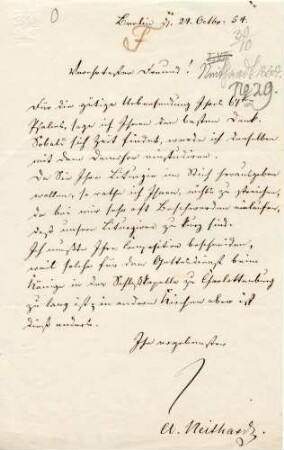 Berlin d. 24. Octbr. 54.
Verehrtester Freund!
Für die gütige Uebersendung Ihres
Psalms, sage ich Ihnen den besten Dank.
Sobald sich Zeit findet, werde ich denselben
mit dem Domchor einstudiren.
Da Sie Ihre Liturgie im Stich herausgeben
wollen, so rathe ich Ihnen, nichts zu streichen,
da bei mir sehr oft Beschwerden einlaufen,
daß unsere Liturgieen zu kurz sind.
Ich mußte Ihre Composition beschneiden,
weil solche für den Gottesdienst beim
Könige in der Schloßkapelle zu Charlottenburg
zu lang ist, in anderen Kirchen aber ist
dieß anders.
Ihr ergebenster
A. Neithardt